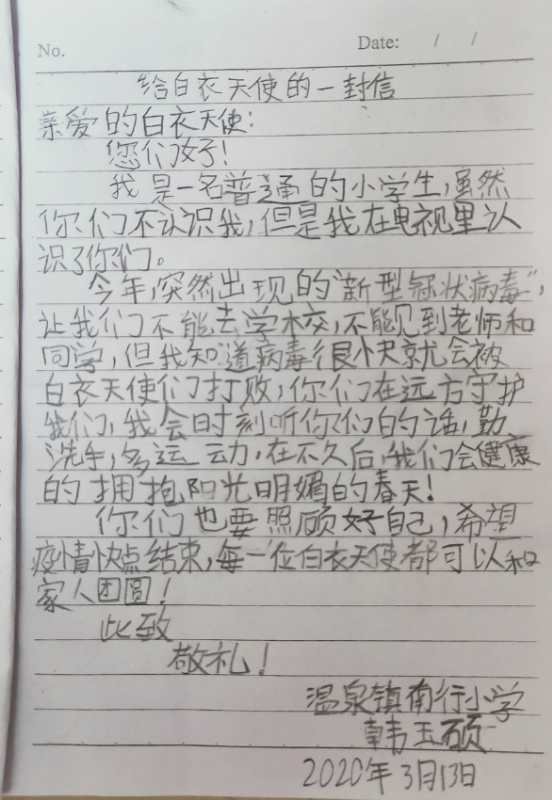 No.
Date: / /
给白衣天使的一封信
亲爱的白衣天使:
您们好!
我是一名普通的小学生,虽然
你们不认识我,但是我在电视里认
识了你们。
今年,突然出现的"新型冠状病毒",
让我们不能去学校,不能见到老师和
同学,但我知道病毒很快就会被
白衣天使们打败,你们在远方守护
我们,我会时刻听你们的话,勤
洗手,多运动,在不久后,我们会健康
的拥抱阳光明媚的春天!
你们也要照顾好自己,希望
疫情快点结束,每一位白衣天使都可以和
家人团圆!
此致
敬礼!
温泉镇南行小学
韩玉硕
2020年3月13日